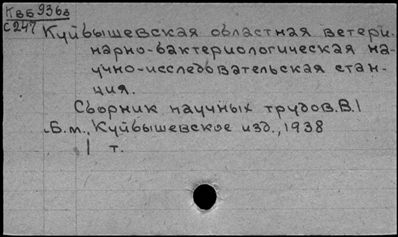 КвБ 936в
С247
Куйбышевская областная ветери-
нарно-бактериологическая на-
учно-исследовательская стан-
ция.
Сборник научных трудов. В. I
Б.м., Куйбышевское изд., 1938
1 т.